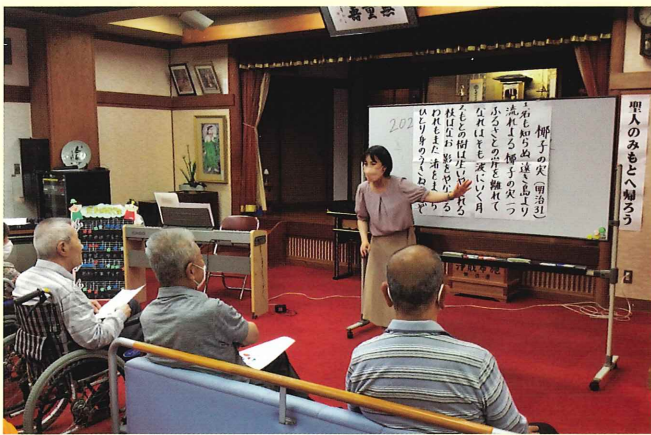 椰子の実（明治31）
名も知らぬ 遠き島より
流れよる 椰子の実一つ
ふるさとの岸を離れて
なれはそも 波にいく月
もとの樹は
枝はなお 影をや
われもまた 渚を
ひとり身の うきね
聖人のみもとへ帰ろう
202